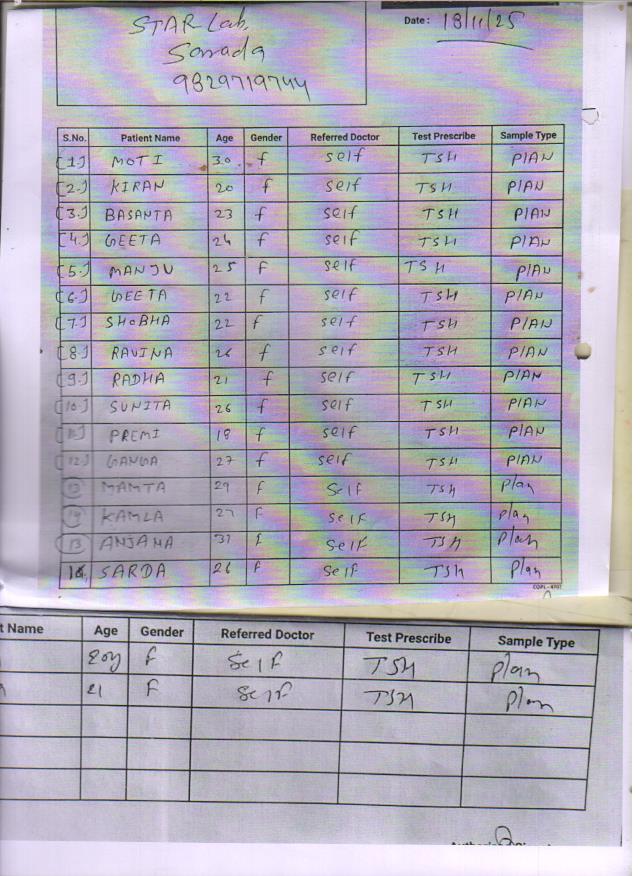 STAR Lab,
Sarada
9829719744
Date : 18/11/25
S.No. Patient Name Age Gender Referred Doctor Test Prescribe Sample Type
[1.] MOTI 30 f self TSH PlAN
[2.] KIRAN 20 f self TSH PlAN
[3.] BASANTA 23 f self TSH PlAN
[4.] GEETA 24 f self TSH PlAN
[5.] MANJU 25 F self TSH PlAN
[6.] GEETA 22 f self TSH PlAN
[7.] SHOBHA 22 f self TSH PlAN
[8.] RAVINA 26 f self TSH PlAN
[9.] RADHA 21 f self TSH PlAN
[10.] SUNITA 26 f self TSH PlAN
[11.] PREMI 18 f self TSH PlAN
[12.] GANGA 27 f self TSH PlAN
13 MAMTA 29 F Self TSH Plan
14 KAMLA 27 F Self TSH Plan
ANJANA F Self TSH Plan
16, SARDA 26 F Self TSH Plan
COPL-4707
t Name Age Gender Referred Doctor Test Prescribe Sample Type
f Self TSH Plan
21 F Self TSH Plan